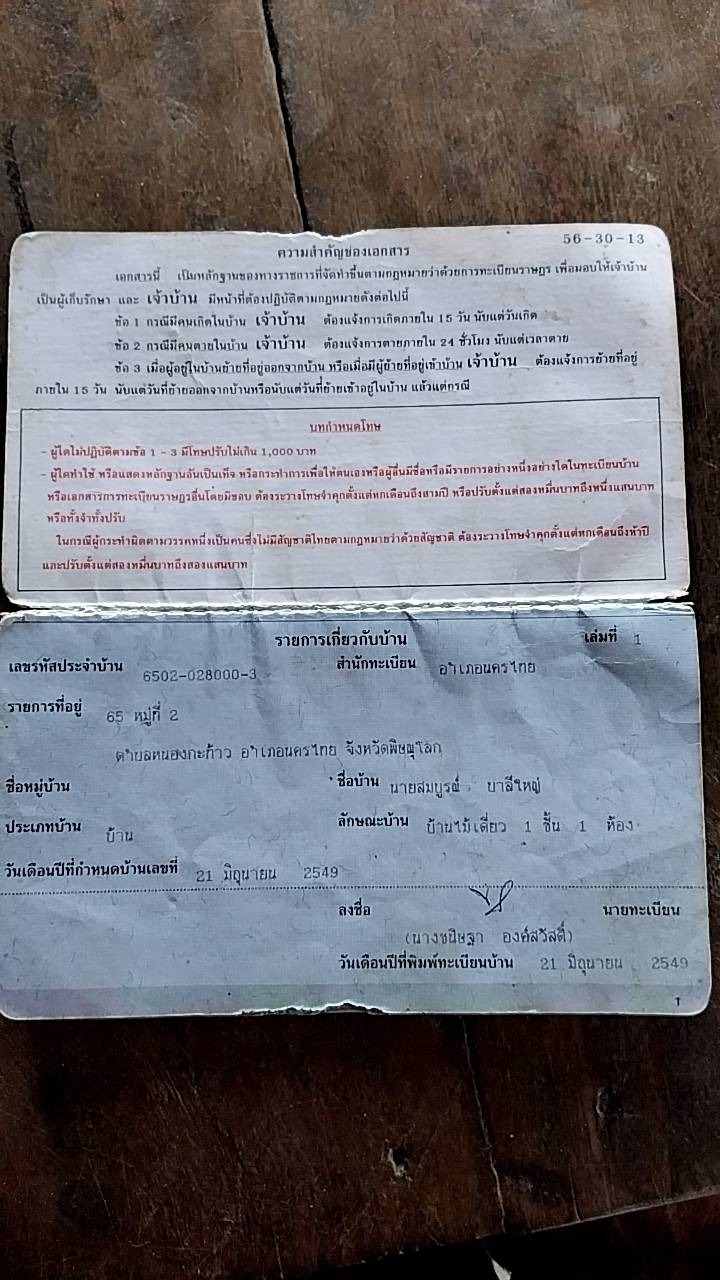 56-30-13
ความสำคัญของเอกสาร
เอกสารนี้ เป็นหลักฐานของทางราชการที่จัดทำขึ้นตามกฎหมายว่าด้วยการทะเบียนราษฎร เพื่อมอบให้เจ้าบ้าน
เป็นผู้เก็บรักษา และ เจ้าบ้าน มีหน้าที่ต้องปฏิบัติตามกฎหมายดังต่อไปนี้
ข้อ 1 กรณีมีคนเกิดในบ้าน เจ้าบ้าน ต้องแจ้งการเกิดภายใน 15 วัน นับแต่วันเกิด
ข้อ 2 กรณีมีคนตายในบ้าน เจ้าบ้าน ต้องแจ้งการตายภายใน 24 ชั่วโมง นับแต่เวลาตาย
ข้อ 3 เมื่อผู้อยู่ในบ้านย้ายที่อยู่ออกจากบ้าน หรือเมื่อมีผู้ย้ายที่อยู่เข้าบ้าน เจ้าบ้าน ต้องแจ้งการย้ายที่อยู่
ภายใน 15 วัน นับแต่วันที่ย้ายออกจากบ้านหรือนับแต่วันที่ย้ายเข้าอยู่ในบ้าน แล้วแต่กรณี
บทกำหนดโทษ
- ผู้ใดไม่ปฏิบัติตามข้อ 1 - 3 มีโทษปรับไม่เกิน 1,000 บาท
- ผู้ใดทำใช้ หรือแสดงหลักฐานอันเป็นเท็จ หรือกระทำการเพื่อให้ตนเองหรือผู้อื่นมีชื่อหรือมีรายการอย่างหนึ่งอย่างใดในทะเบียนบ้าน
หรือเอกสารการทะเบียนราษฎรอื่นโดยมิชอบ ต้องระวางโทษจำคุกตั้งแต่หกเดือนถึงสามปี หรือปรับตั้งแต่สองหมื่นบาทถึงหนึ่งแสนบาท
หรือทั้งจำทั้งปรับ
ในกรณีผู้กระทำผิดตามวรรคหนึ่งเป็นคนซึ่งไม่มีสัญชาติไทยตามกฎหมายว่าด้วยสัญชาติ ต้องระวางโทษจำคุกตั้งแต่หกเดือนถึงห้าปี
และปรับตั้งแต่สองหมื่นบาทถึงสองแสนบาท
รายการเกี่ยวกับบ้าน เล่มที่ 1
เลขรหัสประจำบ้าน 6502-028000-3 สำนักทะเบียน อำเภอนครไทย
รายการที่อยู่ 65 หมู่ที่ 2
ตำบลหนองกะท้าว อำเภอนครไทย จังหวัดพิษณุโลก
ชื่อหมู่บ้าน ชื่อบ้าน นายสมบูรณ์ บาลีใหญ่
ประเภทบ้าน บ้าน ลักษณะบ้าน บ้านไม้เดี่ยว 1 ชั้น 1 ห้อง
วันเดือนปีที่กำหนดบ้านเลขที่ 21 มิถุนายน 2549
ลงชื่อ นายทะเบียน
(นางชนิษฐา องค์สวัสดิ์)
วันเดือนปีที่พิมพ์ทะเบียนบ้าน 21 มิถุนายน 2549